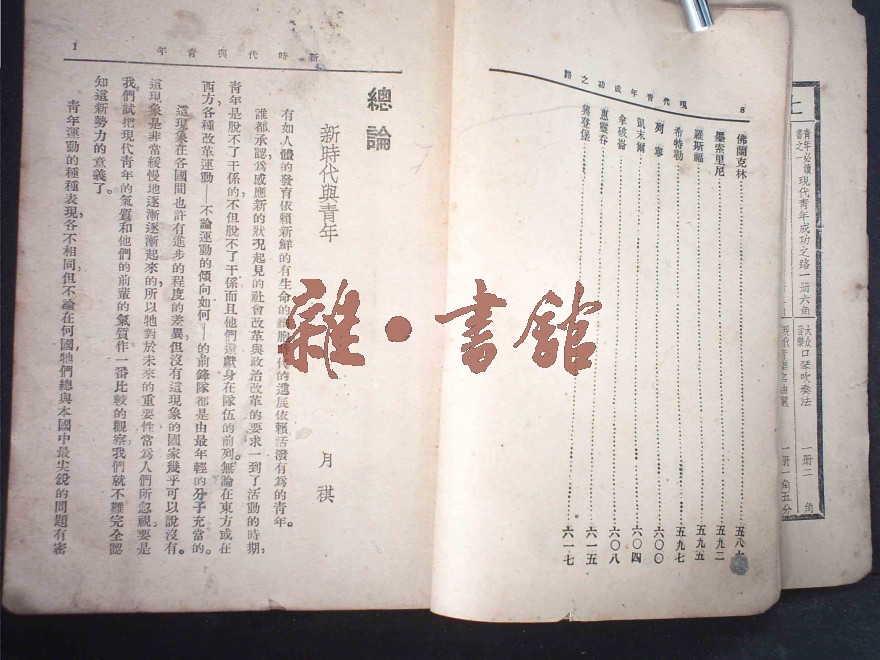 上
青年必讀書之一
現代青年成功之路一冊六角
大众音樂
口琴吹奏法 一冊二角
一冊一角五分
8
現代青年成功之路
佛蘭克林
墨索里尼 五九二
羅斯福 五九五
希特勒 五九七
列寧 六〇〇
凱末爾 六〇四
拿破崙 六〇八
惠靈吞 六一五
興登堡 六一七
新時代與青年
1
總論
新時代與青年
月祺
有如人體的發育依賴新鮮的有生命的細胞時代的進展依賴活潑有為的青年。
誰都承認為感應新的狀况起見的社會改革與政治改革的要求一到了活動的時期，
青年是脫不了干係的不但脫不了干係而且他們還獻身在隊伍的前列無論在東方或在
西方各種改革運動——不論運動的傾向如何——的前鋒隊都是由最年輕的分子充當的。
這現象在各國間也許有進步的程度的差異但沒有這現象的國家幾乎可以說沒有。
這現象是非常緩慢地逐漸逐漸起來的所以牠對於未來的重要性常為人們所忽視要是
我們試把現代青年的氣質和他們的前輩的氣質作一番比較的觀察我們就不難完全認
知這新勢力的意義了。
青年運動的種種表現，各不相同，但不論在何國，牠們總與本國中最尖銳的問題有密
雜·書館